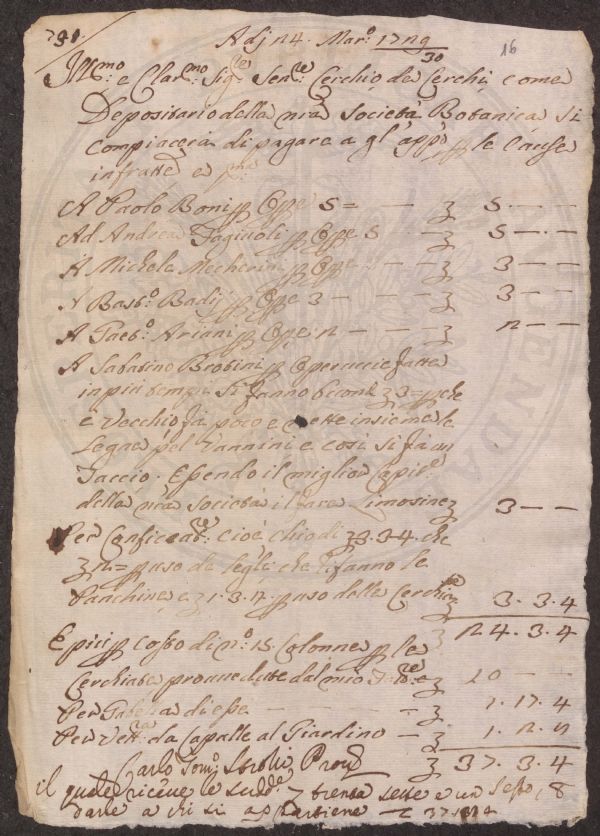 731. Adj n4. Mar:o 1729/30 16
Ill:mo e Clar:mo Sig:re Sen:re Cerchio de Cerchi, come
Depositario della nra Società Botanica si
compiacerà di pagare a gl'app:o p le Cause
infratte e p:a
A Paolo Boni p Ope 5 = — — 5 · — —
Ad Andrea Faginoli p Ope 5 — — 5 — · —
A Michele Mecherini p Ope — — — 3 — — —
A Bast:o Badij p Ope 3 — — — 3 — — —
A Gaet:o Ariani p Ope n — — — n — —
A Sabatino Brotini p Operaccie fatte
in più tempi si fanno 3 = p che
è Vecchio fà poco e mette insieme le
Legne pel Vannini e così si fà un
Taccio. Essendo il miglior
della nra Società il fare Limosine 3 — —
Per Conficcat:re cioè chiodi 3.3.4. che
n = p uso de le che si fanno le
Panchine, e 1.3.4 p uso delle Cerchiate 3.3.4
n4.3.4
E più p costo di n:o 15. Colonne p le
Cerchiate provvedute dal mio 10 — —
Per Gabella di esse — — — — 1.17.4
Per Vett:ra da Capalle al Giardino — 1.n.n
Carlo Tom:o Strozzi Prov:re 37.3.4
il quale riceve le sudd:e trenta sette e un Sesto, 8
darle a chi si appartiene — 37